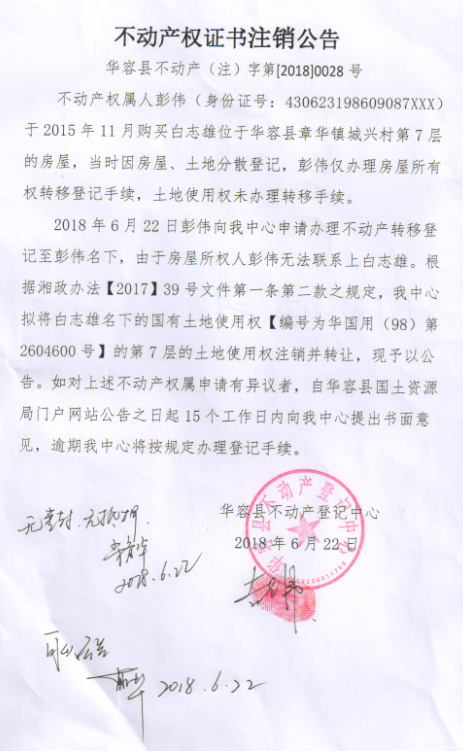 不动产权证书注销公告
华容县不动产（注）字第[2018]0028 号
不动产权属人彭伟（身份证号：430623198609087XXX）
于 2015 年 11 月购买白志雄位于华容县章华镇城兴村第 7 层
的房屋，当时因房屋、土地分散登记，彭伟仅办理房屋所有
权转移登记手续，土地使用权未办理转移手续。
2018 年 6 月 22 日彭伟向我中心申请办理不动产转移登
记至彭伟名下，由于房屋所权人彭伟无法联系上白志雄。根
据湘政办法【2017】39 号文件第一条第二款之规定，我中心
拟将白志雄名下的国有土地使用权【编号为华国用（98）第
2604600 号】的第 7 层的土地使用权注销并转让，现予以公
告。如对上述不动产权属申请有异议者，自华容县国土资源
局门户网站公告之日起 15 个工作日内向我中心提出书面意
见，逾期我中心将按规定办理登记手续。
华容县不动产登记中心
2018 年 6 月 22 日
华容县不动产登记中心
无查封.无抵押.
2018.6.22
可以公告
2018.6.22